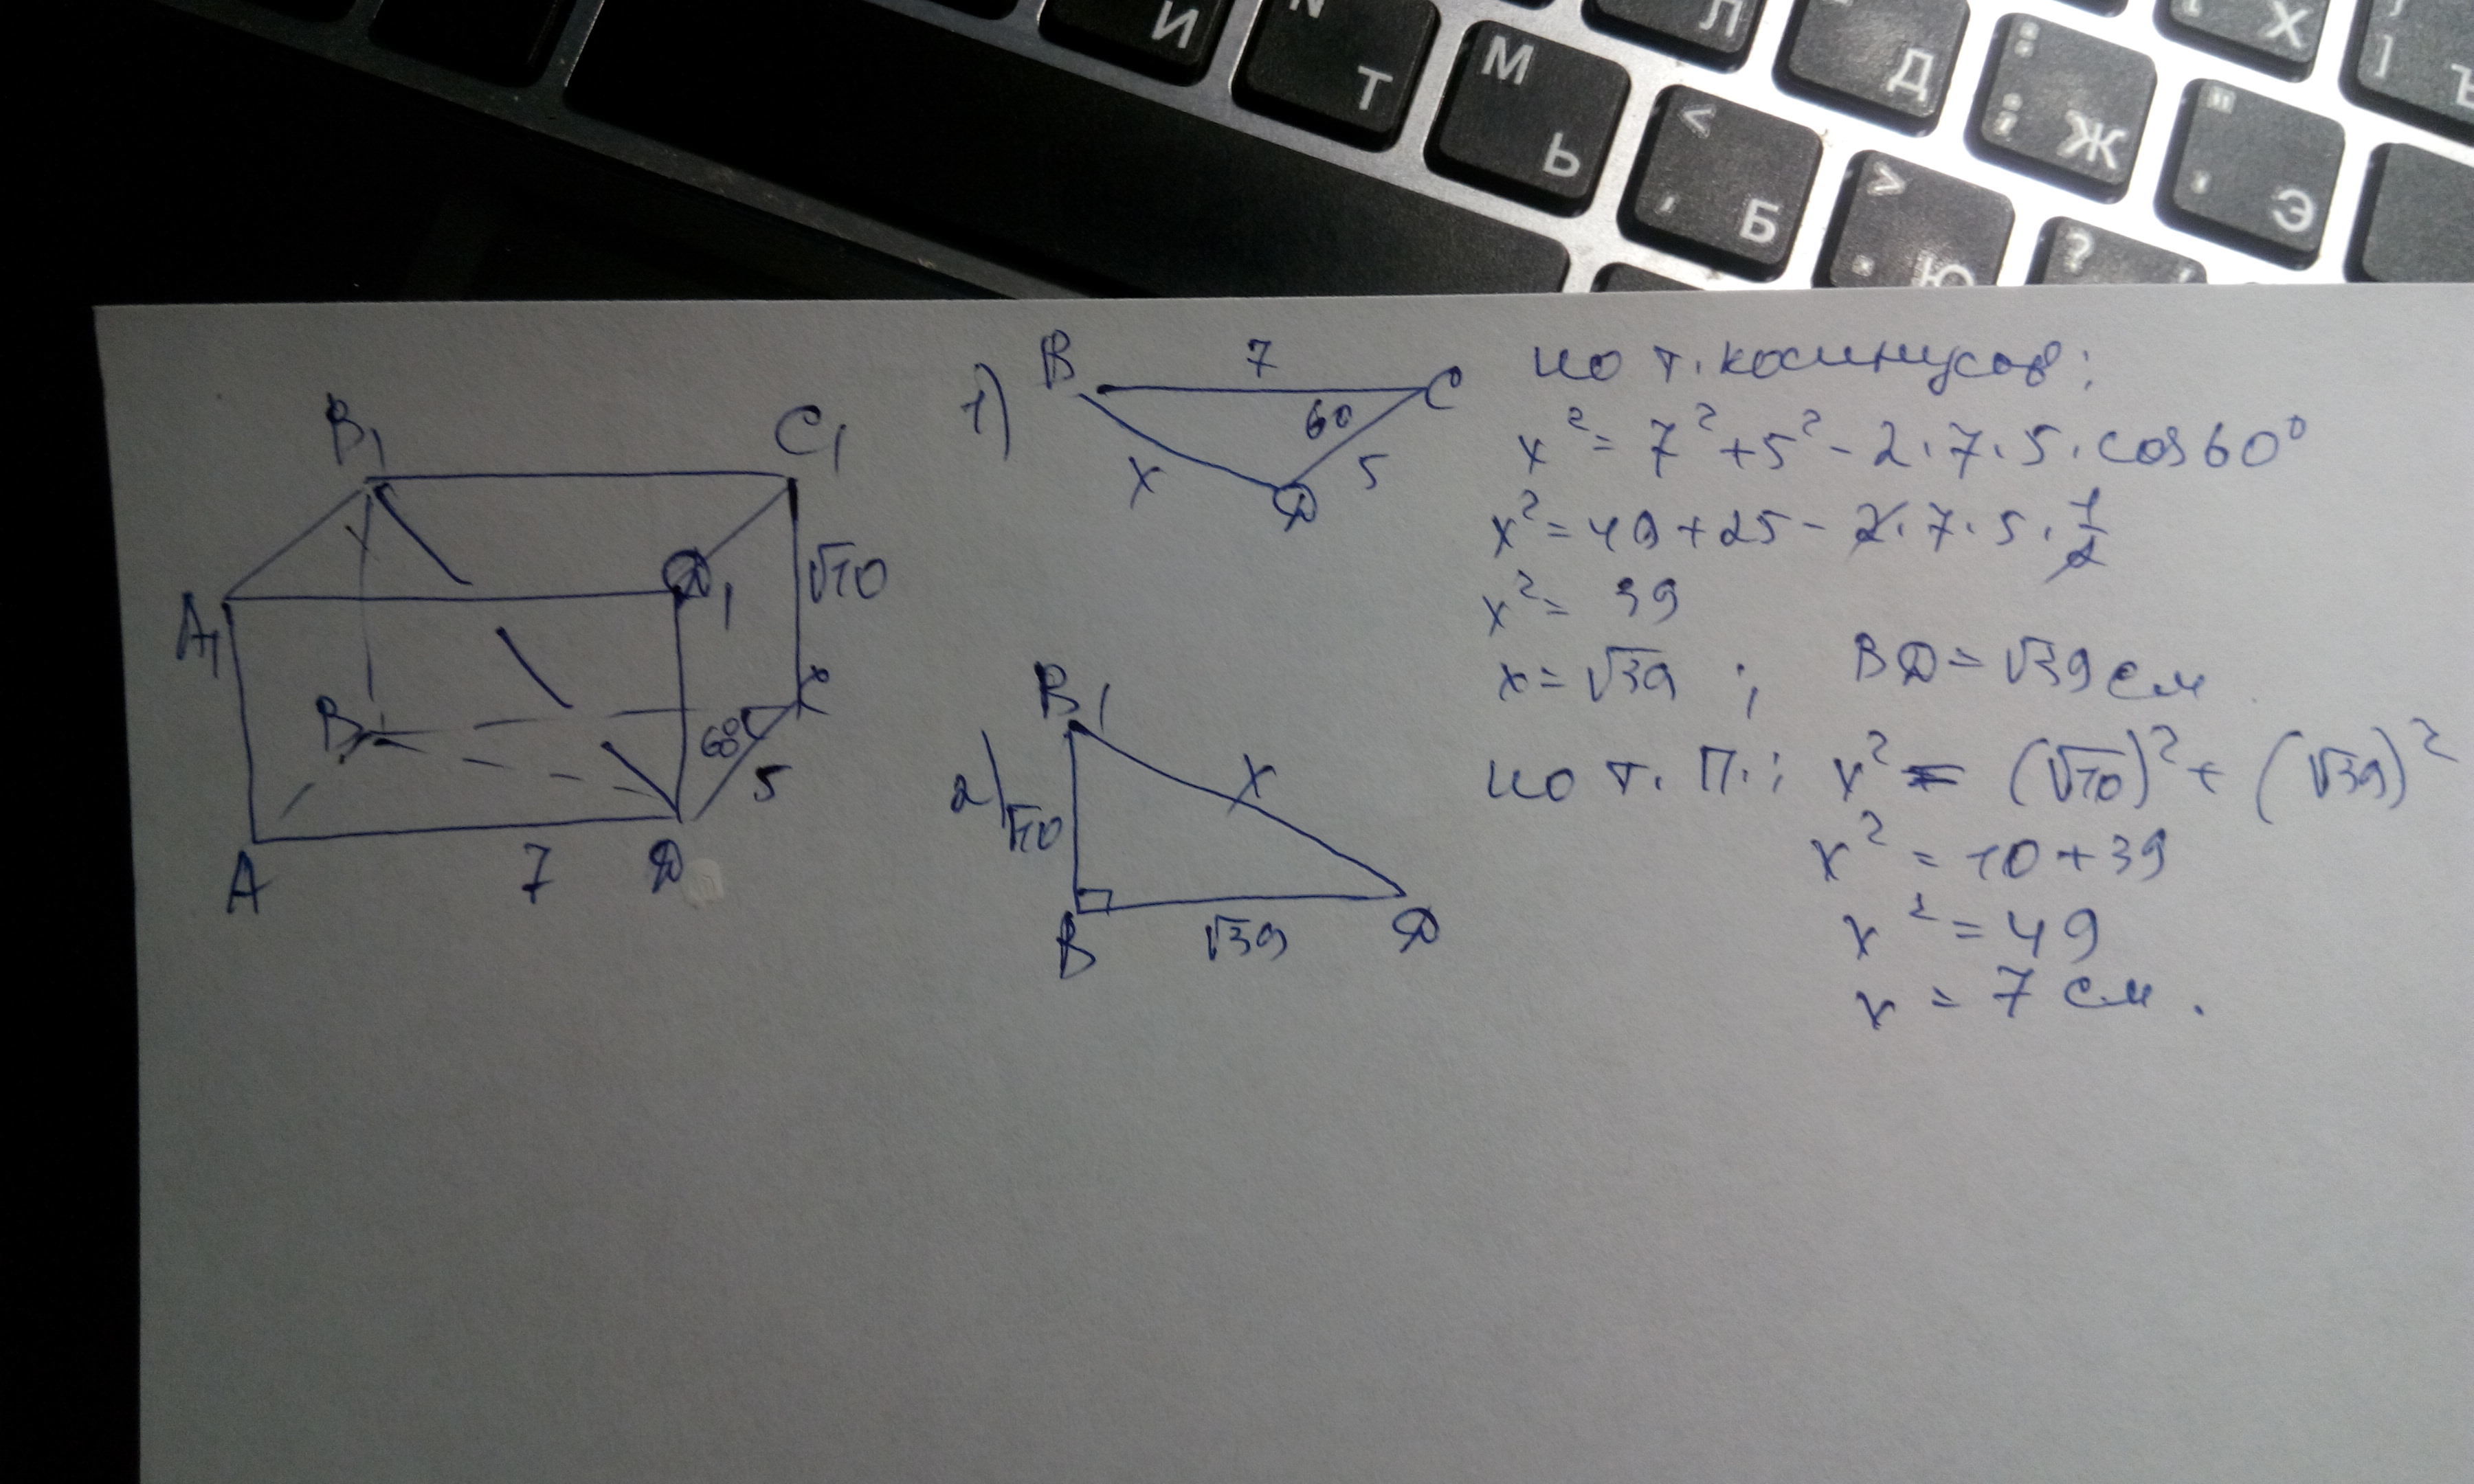 И
Т
М
Ь
Л
<
,
Б
Д
>
.
Ю
Ж
?
"
Э
Х
]
Ъ
B₁
C₁
A₁
Д₁
√10
B
C
60°
5
A
7
Д
1)
B
7
C
60
x
5
Д
по т. косинусов:
x² = 7² + 5² - 2·7·5·cos60°
x² = 49 + 25 - 2·7·5·1/2
x² = 39
x = √39 ; BД = √39 см
2)
B₁
√10
x
B
√39
Д
по т. П.: x² = (√10)² + (√39)²
x² = 10 + 39
x² = 49
x = 7 см.